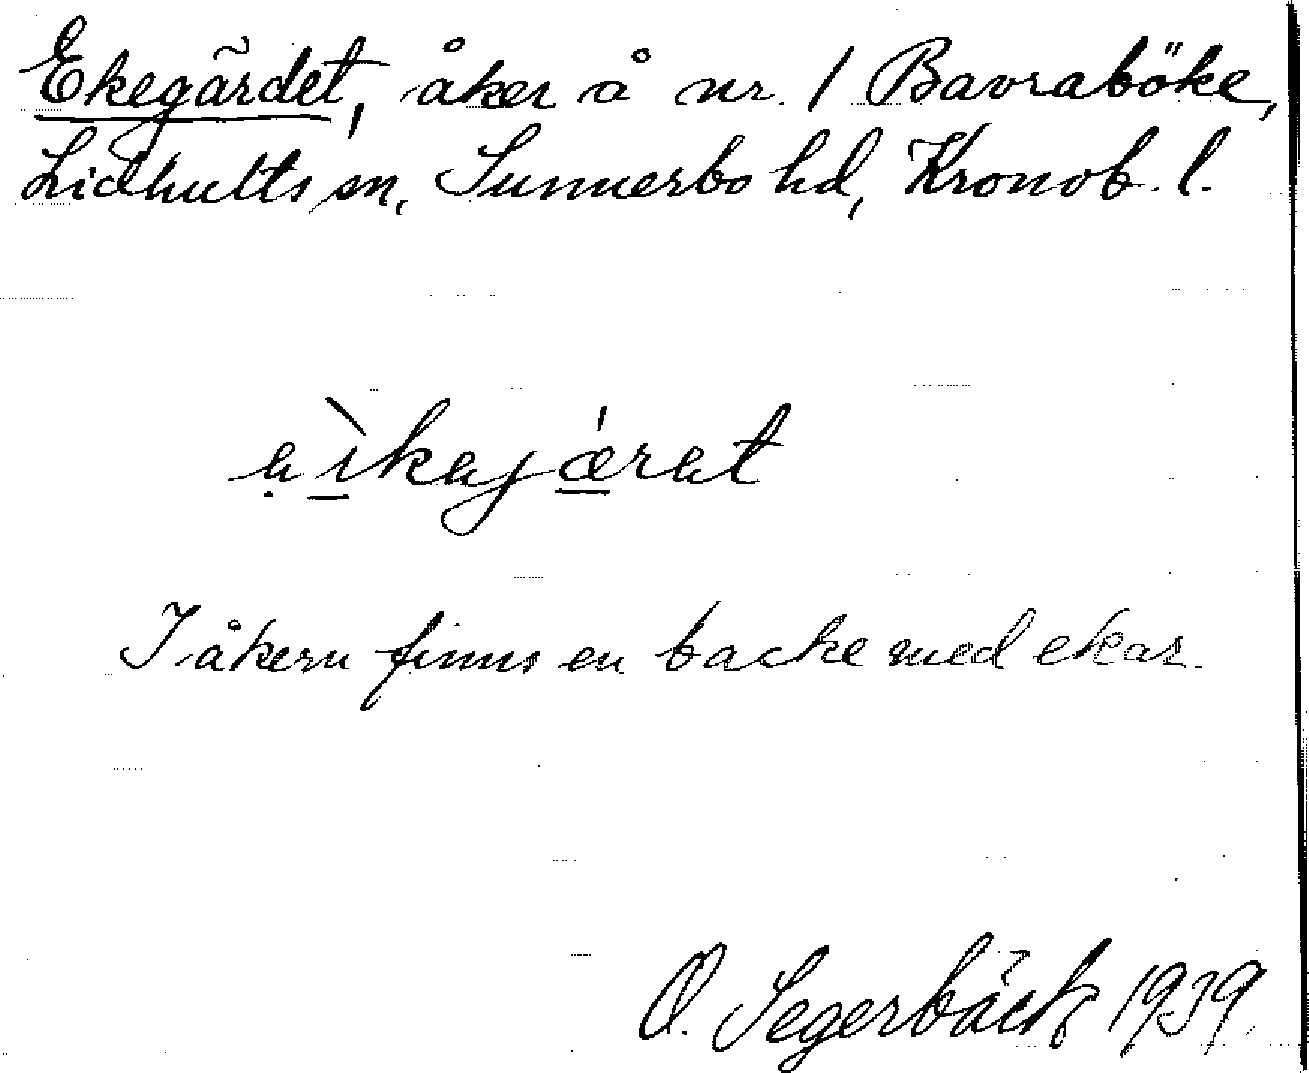 Ekegärdet, åker å nr. 1 Bavraböke,
Lidhults sn, Sunnerbo hd, Kronob. l.
I åkern finns en backe med ekar.
O. Segerbäck 1939